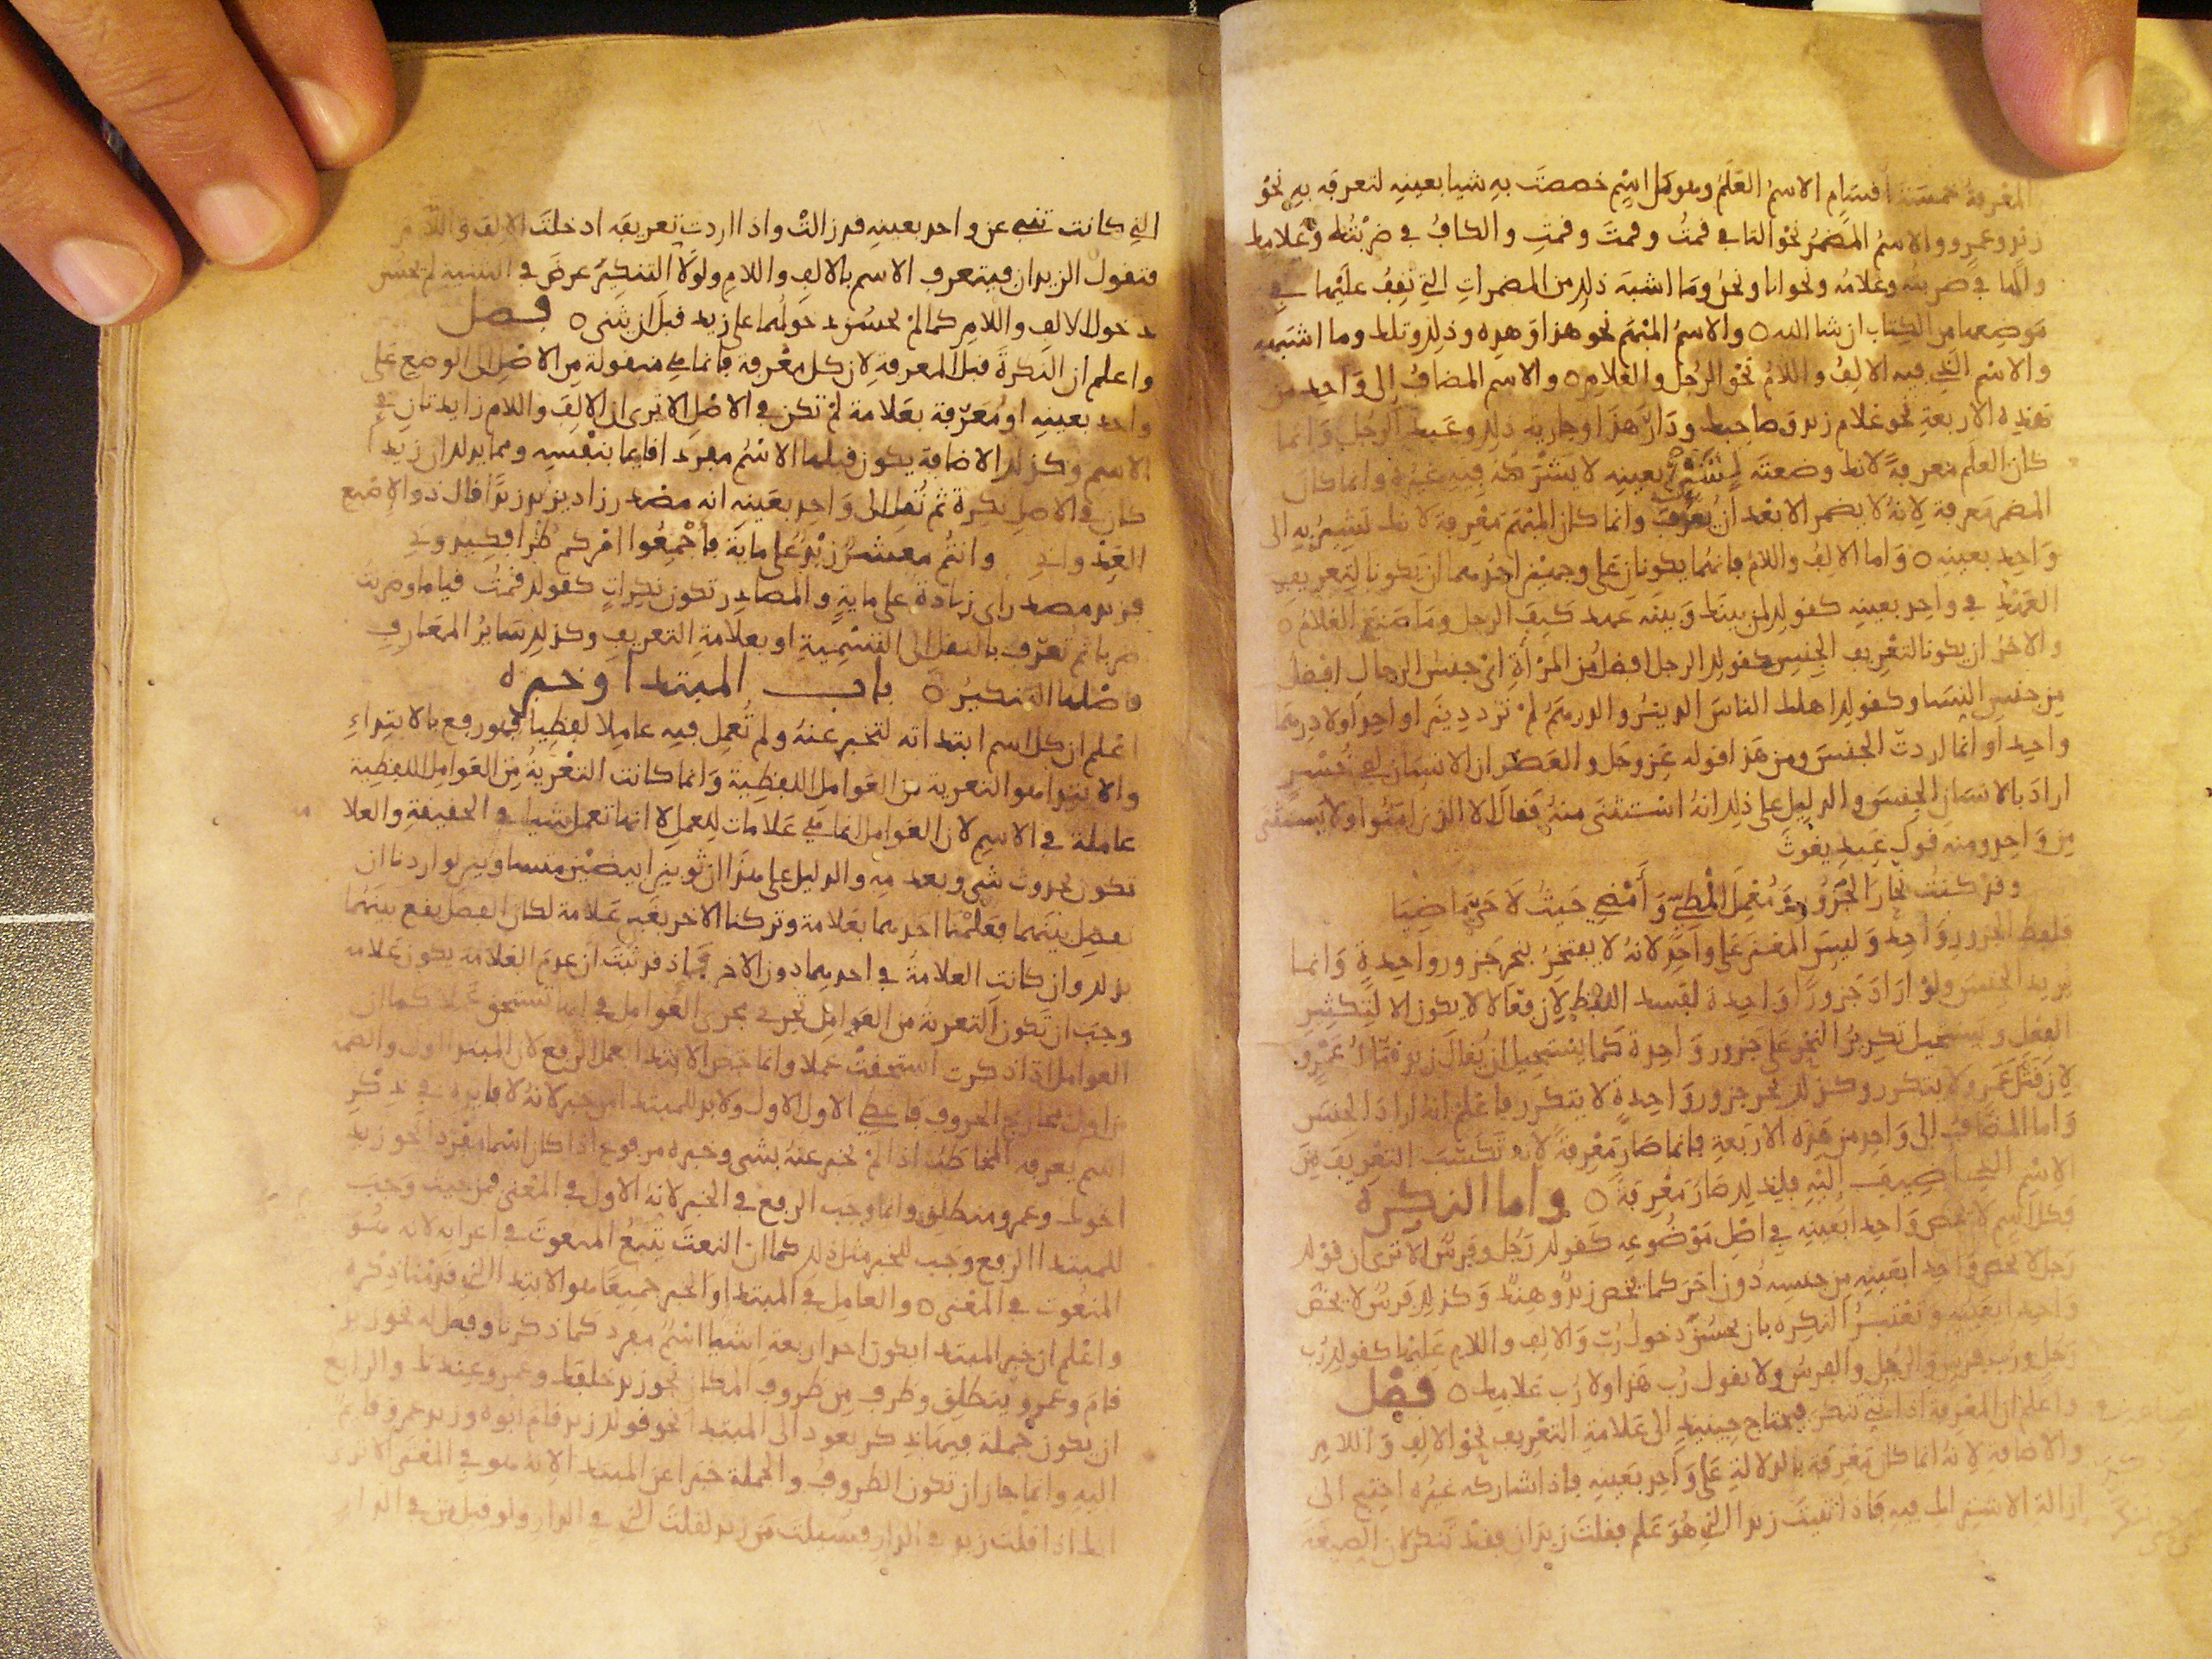 المعرفة خمسة اقسام الاسمُ العَلَمُ وهو كل اسمٍ خصصتَ بهِ شيا بعينهِ لتعرفه بهِ نحوُ
زيدٍ وعمرٍو والاسمُ المضمرُ نحو التا في قمتُ وقمتَ وقمتِ والكافُ في ضربتُك وغلامك
والها في ضربتُه وغلامُه ونحو انا ونحنُ وما اشبهَ ذلك من المضمراتِ التي تقِفُ عليها في
مَوضعها من الكتاب ان شا الله ٥ والاسمُ المبْهَم نحو هذا وَهذِه وذلك وتلك وما اشبهه
والاسْم الذي فيه الالِفُ واللامُ نحْو الرجُل والغلامِ ٥ والاسم المضافُ الى وَاحِد من
هَذِه الاربعةِ نحو غلام زيد وصاحبك ودَار هَذَا وجارية ذلك وعَبد الرجُلِ وَانما
كان العلَم معرفةً لانك وضعتَه لشيءٍ بعينهِ لا يَشْرَكهُ فيه غيرُه وانما كان
المضمر مَعرفة لِانهُ لا يضمر الا بَعْد ان يُعرَف وانما كان المبْهَم مَعْرِفة لانك تشيرُ بِهِ الى
وَاحِد بعينهِ ٥ وَاما الالِفُ واللامُ فانهُما يكونان عَلى وجهيْن احدُهما ان يكونا لتعريفِ
العَهْدِ في واحِدٍ بعينهِ كقولك لمن بينَك وَبينَه عَهد كيفَ الرجل ومَا صَنعَ الغلامُ ٥
والاخرُ ان يكونا لتعْريف الجنسِ كقولك الرجل افضلُ من المرْأةِ ايْ جنسُ الرجال افْضلُ
مِن جنسِ النسَا وكقولك اهلك الناسَ الدينارُ والدرهَمُ لمْ تُرد دينارا واحِدا ولا درهما
واحِدا وانما اردتَ الجنسَ ومن هَذا قوله عَزوجَل والعَصْر ان الانسَان لفي خُسْرٍ
ارادَ بالانسَان الجِنسَ والدليل على ذلك انهُ اسْتثنَى منهُ فقال الا الذينَ امَنُوا ولا يُستثنى
مِن وَاحِد ومنه قول عَبدِ يغوثَ
وقد كنتُ نَحّارَ الجَزُورِ وَمُعْمِلَ الْمَطيِّ وَأَمْضِي حَيثُ لَا حَيَّ مَاضِيَا
فلفظ الجزورِ وَاحِد وَليسَ المعْنَى عَلى واحِدٍ لانهُ لا يفتخرُ بنحرِ جَزور واحِدةٍ وَانما
يريد الجنسَ ولوْ ارَادَ جَزورًا وَاحِدة لفسد اللفظ لِان فعّالا لا يكون الا لتكثيرِ
الفِعل ويستحيل تكريرُ النحْر عَلى جَزور وَاحِدة كَما يسْتحِيل ان يُقال زيد قتّالُ عَمْرٍو
لِان قَتْل عَمرو لا يتكرر وكذلك نحر جزور وَاحِدةٍ لا يتكرر فاعْلم انهُ ارادَ الجنسَ
وَاما المضَافُ الى وَاحِد من هَذِه الاربَعةِ فانما صَار مَعْرفة لانه تكتسَب التعْريفَ مِن
الاسْمِ الذي اضيفَ اليْهِ فلذلك صَارَ مَعْرفةً ٥ واما النكرة
فكل اسْمٍ لا يخص وَاحِدا بعَينهِ في اصْلِ مَوْضُوعِه كقولك رَجُل وفَرسٌ الا ترى ان قوْلك
رَجل لا يخص وَاحِدا بعَينهِ مِن جنسِه دُون اخَر كما يخص زيدٌ وهندٌ وَكذلك فرسٌ لا يخصّ
واحِدا بعَينِهِ وتعْتبِرُ النكِرَه بان يحسُنَ دخولُ رُبَّ وَالالِف واللام عَليْها كقولك رُبَّ
رَجُل ورُبّ فرسٍ والرّجُل والفرسُ ولا تقول رُب هَذا ولا رُب غلامِك ٥ فصْل
واعلم ان المعْرفة اذا ثنيتْ تنكرَ فتحتاج حِينيذٍ الى عَلامةِ التعْريف نحْو الالِفِ وَاللامِ
والاضافه لِانهُ انما كان مَعْرفة بالدلالةِ عَلى وَاحِدٍ بعَينهِ فاذا شاركه غيْرُه احْتيج الى
ازالة الاشتراك فيهِ فاذا ثنيتَ زيدا الذي هُوَ عَلم فقلتَ زيدَان فقدْ تنكر لان الصِيغة
التي كانت تنبي عن واحد بعينهِ قد زالتْ واذا اردتَ تعريفَه ادخلتَ الالِفَ واللامَ
فتقول الزيدان فيتعرف الاسم بالالفِ واللامِ ولولا التنكيرُ عرضَ في التثنيةِ لم يحسُن
دخول الالف واللامِ كما لمْ يحسُن دخولُهما على زيد قبل ان يثنى ٥ فصل
واعلم ان النكرةَ قبل المعرفةِ لان كل معْرفة فانما هي منقولة من الاصْلِ الى الوضع عَلى
واحد بعينهِ او مُعَرّفة بعَلامة لمْ تكن في الاصْلِ الا ترى ان الالِفَ واللام زايدتانِ في
الاسْمِ وكذلك الاضافة يكون قبلها الاسْمُ مفرد اقايما بنفْسِه ومما يدلك ان زيدا
كان في الاصْلِ نكِرة ثم نُقِل الى وَاحِدٍ بعَينهِ انه مصْدر زاد يزيد زيدًا قال ذو الاصْبع
العَدْواني وانتُم معشرٌ زيْدٌ عَلى مايَةٍ فأجْمِعُوا امْركم طُرًّا فكِيدوني
فزيد مصدر اي زيادة على مايةٍ والمصادِر تكون نكِراتٍ كقولك قمْتُ قياما وضربت
ضربا ثم تعرّف بالنقل الى التسْمِيةِ او بعلامةِ التعريفِ وكذلك سَايرُ المعَارفِ
فاصْلها التنكيرُ ٥ باب المبتدا وخبره
اعْلم ان كل اسم ابتداته لتخبر عنهُ ولم تُعمِل فيه عامِلا لفظيا فهو رفع بالابتداءِ
والابتِدا هو التعرية من العَوامل اللفظية وَانما كانت التعْرِيةُ مِن العَوامِل اللفظِية
عاملة في الاسمِ لان العَوامل انما هي عَلامات للعمل لا انها تعمل شيا في الحقيقةِ والعلا
تكون بحدوث شي وبعدمه والدليل على هذا ان ثوبين ابيضيْن متساويين لو اردنا ان
نفصل بينهما فعَلّمْنا احَدهما بعَلامة وتركنا الاخر بغير عَلامة لكان الفصل يقع بينهما
بذلك وان كانت العلامةُ في احدهما دون الاخر فاذ قد ثبتَ ان عدم العَلامة يكون عَلامة
وجبَ ان تكون التعرية من العوامِل تجري مجرى العوامل في انها تستحق عَملا كما ان
العوامل اذا ذكرت استحقتْ عملا وانما خص الابتدا بعمل الرفع لان المبتدا اول والضمه
من اول مخارج الحروف فاعطي الاول الاول ولا بد للمبتدا من خبر لانهُ لا فايدة في ذِكرِ
اسم يعرفه المخاطبُ اذا لمْ تخبر عنهُ بشي وخبره مرفوع اذا كان اسْما مفْردا نحو زيد
اخوك وعمرو منطلِق وانما وجب الرفعُ في الخبر لانهُ الاول في المعْنى فمن حيث وجب
للمبتدا الرفع وجب للخبر مثل ذلك كما ان النعتَ يتبَعُ المنعوتَ في اعرابه لانه هُوَ
المنعوت في المعْنى ٥ والعامِل في المبتدا والخبر جميعا هو الابتدا الذي قدمْنا ذِكره
واعْلم ان خبر المبتدا يكون احد اربعةِ اشيا اسْمٌ مفرد كما ذكرنا وفعل له نحو زيد
قام وعمرو ينطلِق وظرف مِن ظروف المكان نحو زيد خلفك وعمرو عندك والرابع
ان يكون جملة فيها ذكر يعود الى المبتدا نحو قولك زيد قام ابوه وزيد عمرو قايم
اليهِ وانما جاز ان تكون الظروفُ والجملة خبرا عن المبتدا لانه هو في المعْنى الا ترى
انك اذا قلت زيد في الدار فسيلتَ مَن زيد لقلتَ الذي في الدار ولو قيل من في الدار